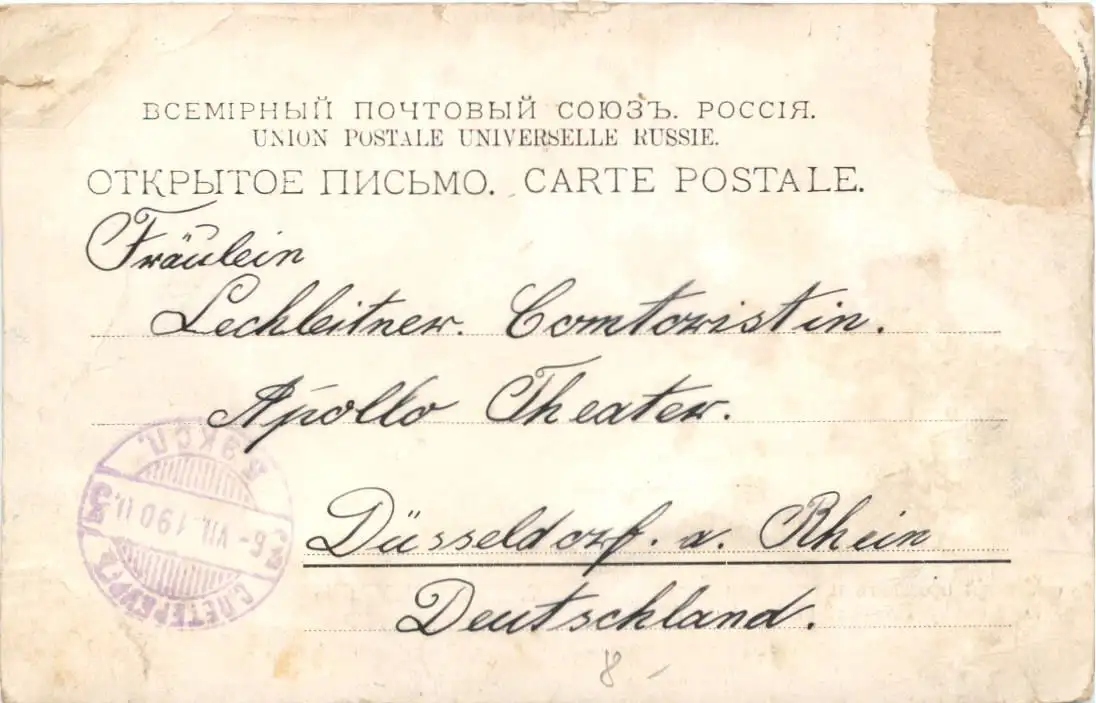 ВСЕМІРНЫЙ ПОЧТОВЫЙ СОЮЗЪ. РОССІЯ.
UNION POSTALE UNIVERSELLE RUSSIE.
ОТКРЫТОЕ ПИСЬМО. CARTE POSTALE.
Fräulein
Lechleitner. Comtoristin.
Apollo Theater.
Düsseldorf. a. Rhein
Deutschland.
8 -
С.ПЕТЕРБУРГЪ
6-VII.190
ЭКСП.